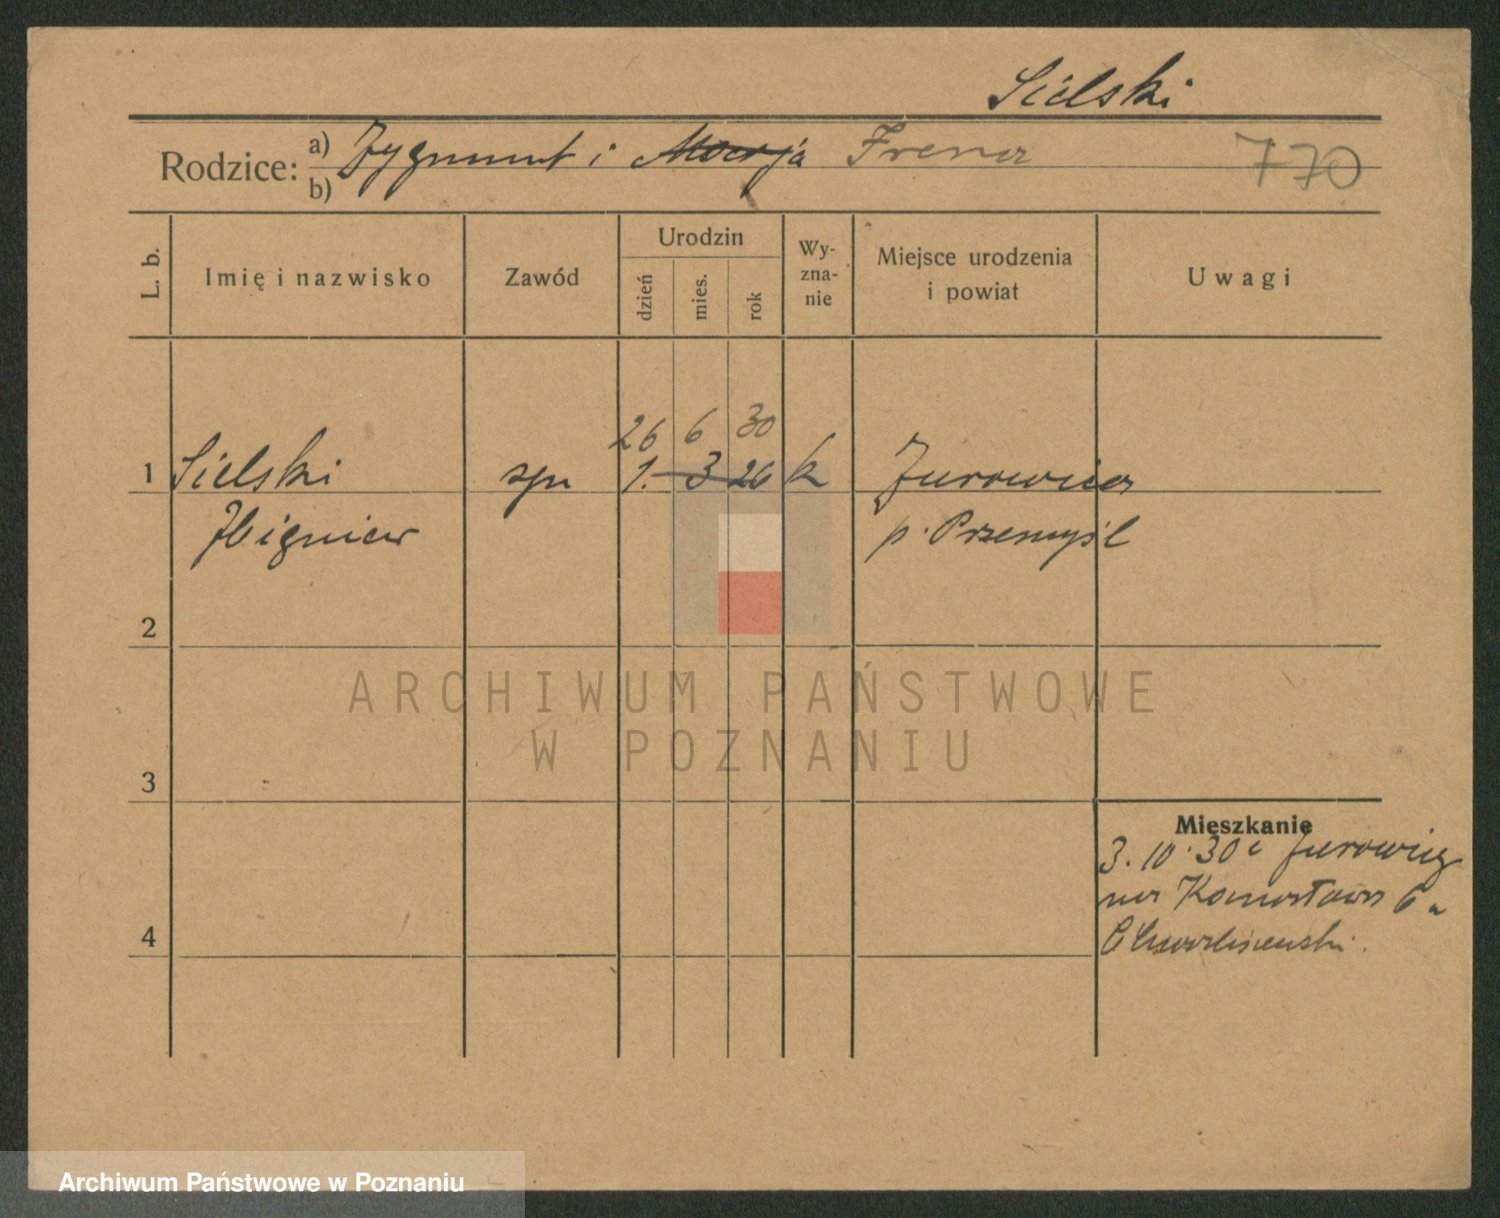 Sielski
Rodzice: a) Zygmunt i Marja Irena
b)
770
L. b.
Imię i nazwisko
Zawód
Urodzin
dzień
mies.
rok
Wy-
zna-
nie
Miejsce urodzenia
i powiat
Uwagi
26 6 30
1 Sielski syn 1. 3 26 k Jurowica
Zbigniew p. Przemyśl
2
ARCHIWUM PAŃSTWOWE
W POZNANIU
3
Mieszkanie
3.10.30 z Jurowicy
na 6
4
Archiwum Państwowe w Poznaniu